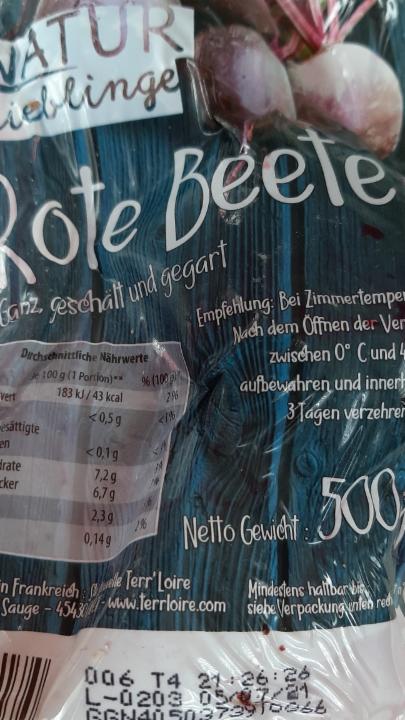 NATUR
lieblinge
Rote Beete
Ganz, geschält und gegart
Empfehlung: Bei Zimmertemper
Nach dem Öffnen der Ver
zwischen 0° C und 4
aufbewahren und innerh
3 Tagen verzehren
Durchschnittliche Nährwerte
Je 100 g (1 Portion)** % (100 g)*
wert 183 kJ / 43 kcal 2%
< 0,5 g <1%
esättigte
en < 0,1 g
drate 7,2 g
cker 6,7 g
2,3 g
0,14 g 2%
Netto Gewicht : 500
in Frankreich : Terr'Loire
Sauge - www.terrloire.com
Mindestens haltbar bis
siehe Verpackung unten rech
006 T4 21:26:26
L-0203 05/07/21